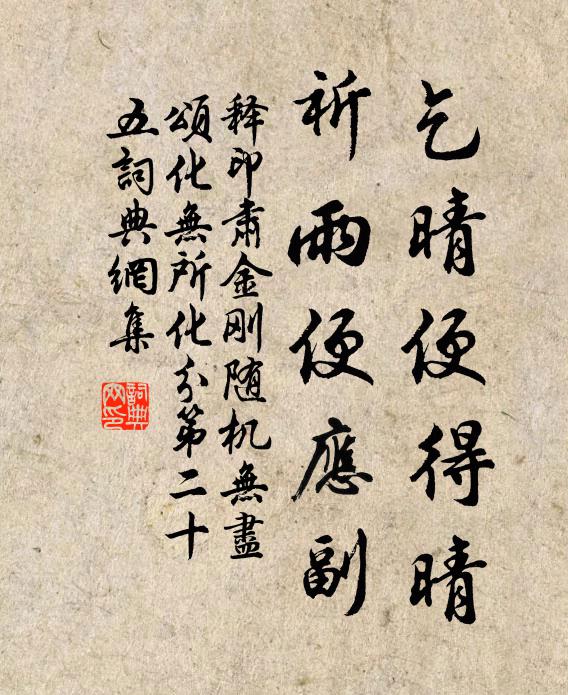 乞晴便得晴
祈雨便應副
释印肅金刚随机無盡
頌化無所化分第二十
五詞典網集
詞典网印